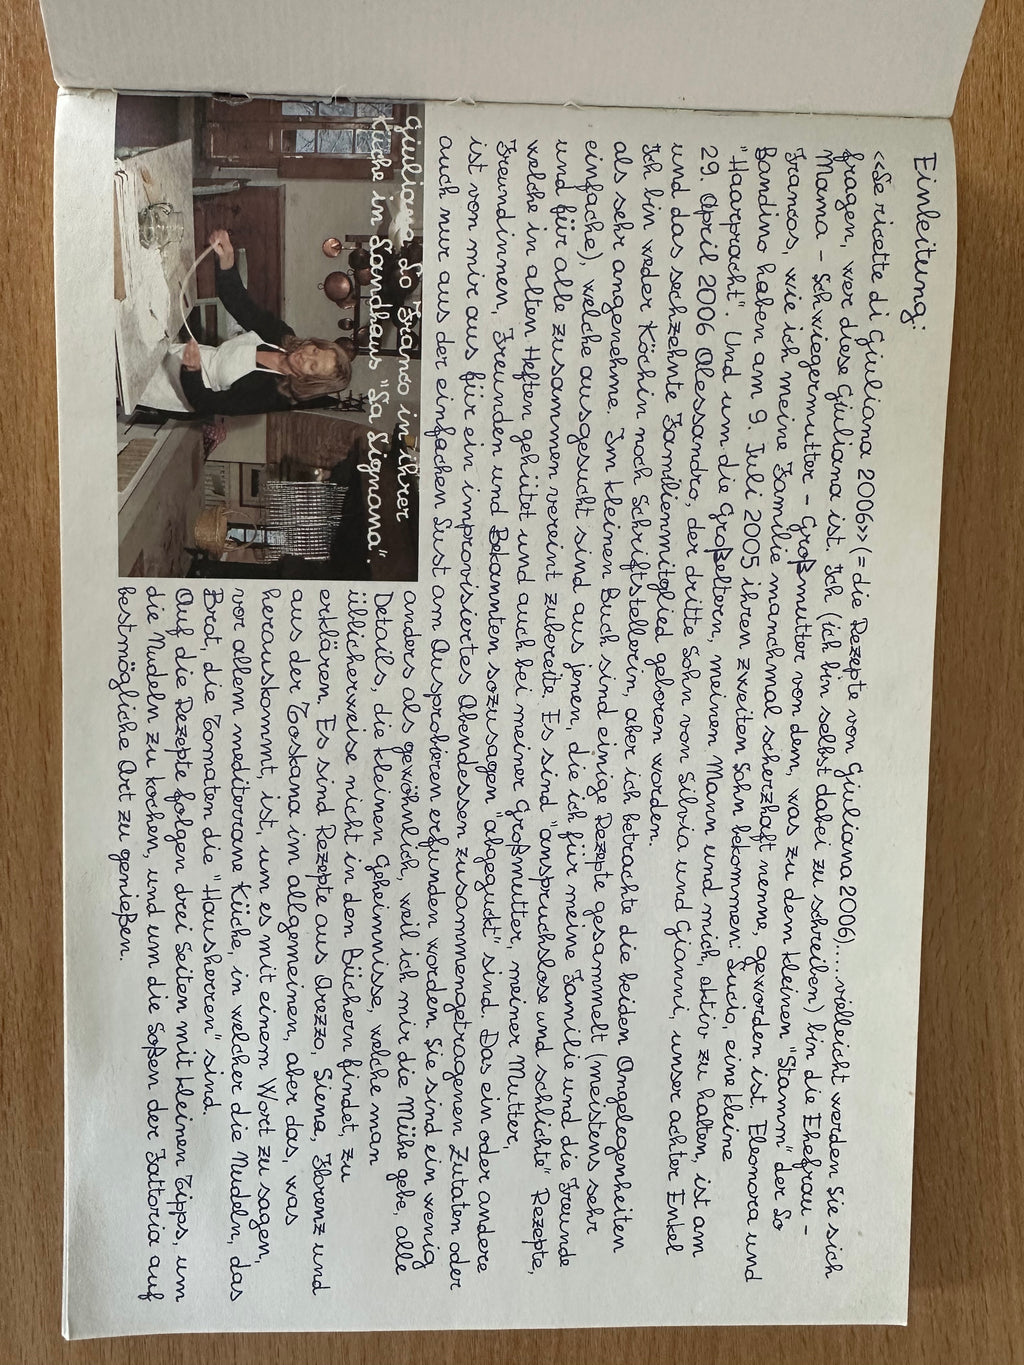 Einleitung:
<<Le ricette di Giuliana 2006>> (= die Rezepte von Giuliana 2006).....vielleicht werden Sie sich
fragen, wer diese Giuliana ist. Ich (ich bin selbst dabei zu schreiben) bin die Ehefrau -
Mama - Schwiegermutter - Großmutter von dem, was zu dem kleinen "Stamm" der Lo
Francos, wie ich meine Familie manchmal scherzhaft nenne, geworden ist. Eleonora und
Bandino haben am 9. Juli 2005 ihren zweiten Sohn bekommen: Lucio, eine kleine
"Haarpracht". Und um die Großeltern, meinen Mann und mich, aktiv zu halten, ist am
29. April 2006 Alessandro, der dritte Sohn von Silvia und Gianni, unser achter Enkel
und das sechzehnte Familienmitglied geboren worden.
Ich bin weder Köchin noch Schriftstellerin, aber ich betrachte die beiden Angelegenheiten
als sehr angenehme. Im kleinen Buch sind einige Rezepte gesammelt (meistens sehr
einfache), welche ausgesucht sind aus jenen, die ich für meine Familie und die Freunde
und für alle zusammen vereint zubereite. Es sind "anspruchslose und schlichte" Rezepte,
welche in alten Heften gehütet und auch bei meiner Großmutter, meiner Mutter,
Freundinnen, Freunden und Bekannten sozusagen "abgeguckt" sind. Das ein oder andere
ist von mir aus für ein improvisiertes Abendessen zusammengetragenen Zutaten oder
auch nur aus der einfachen Lust am Ausprobieren erfunden worden. Sie sind ein wenig
anders als gewöhnlich, weil ich mir die Mühe gebe, alle
Details, die kleinen Geheimnisse, welche man
üblicherweise nicht in den Büchern findet, zu
erklären. Es sind Rezepte aus Arezzo, Siena, Florenz und
aus der Toskana im allgemeinen, aber das, was
herauskommt, ist, um es mit einem Wort zu sagen,
vor allem mediterrane Küche, in welcher die Nudeln, das
Brot, die Tomaten die "Hausherren" sind.
Auf die Rezepte folgen drei Seiten mit kleinen Tipps, um
die Nudeln zu kochen, und um die Soßen der Fattoria auf
bestmögliche Art zu genießen.
Giuliana Lo Franco in ihrer
Küche in Landhaus "La Lignana".